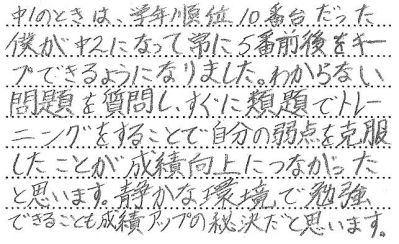 中1のときは、学年順位10番台だった
僕が中2になって常に5番前後をキー
プできるようになりました。わからない
問題を質問し、すぐに類題でトレー
ニングをすることで自分の弱点を克服
したことが成績向上につながった
と思います。静かな環境で勉強
できることも成績アップの秘決だと思います。